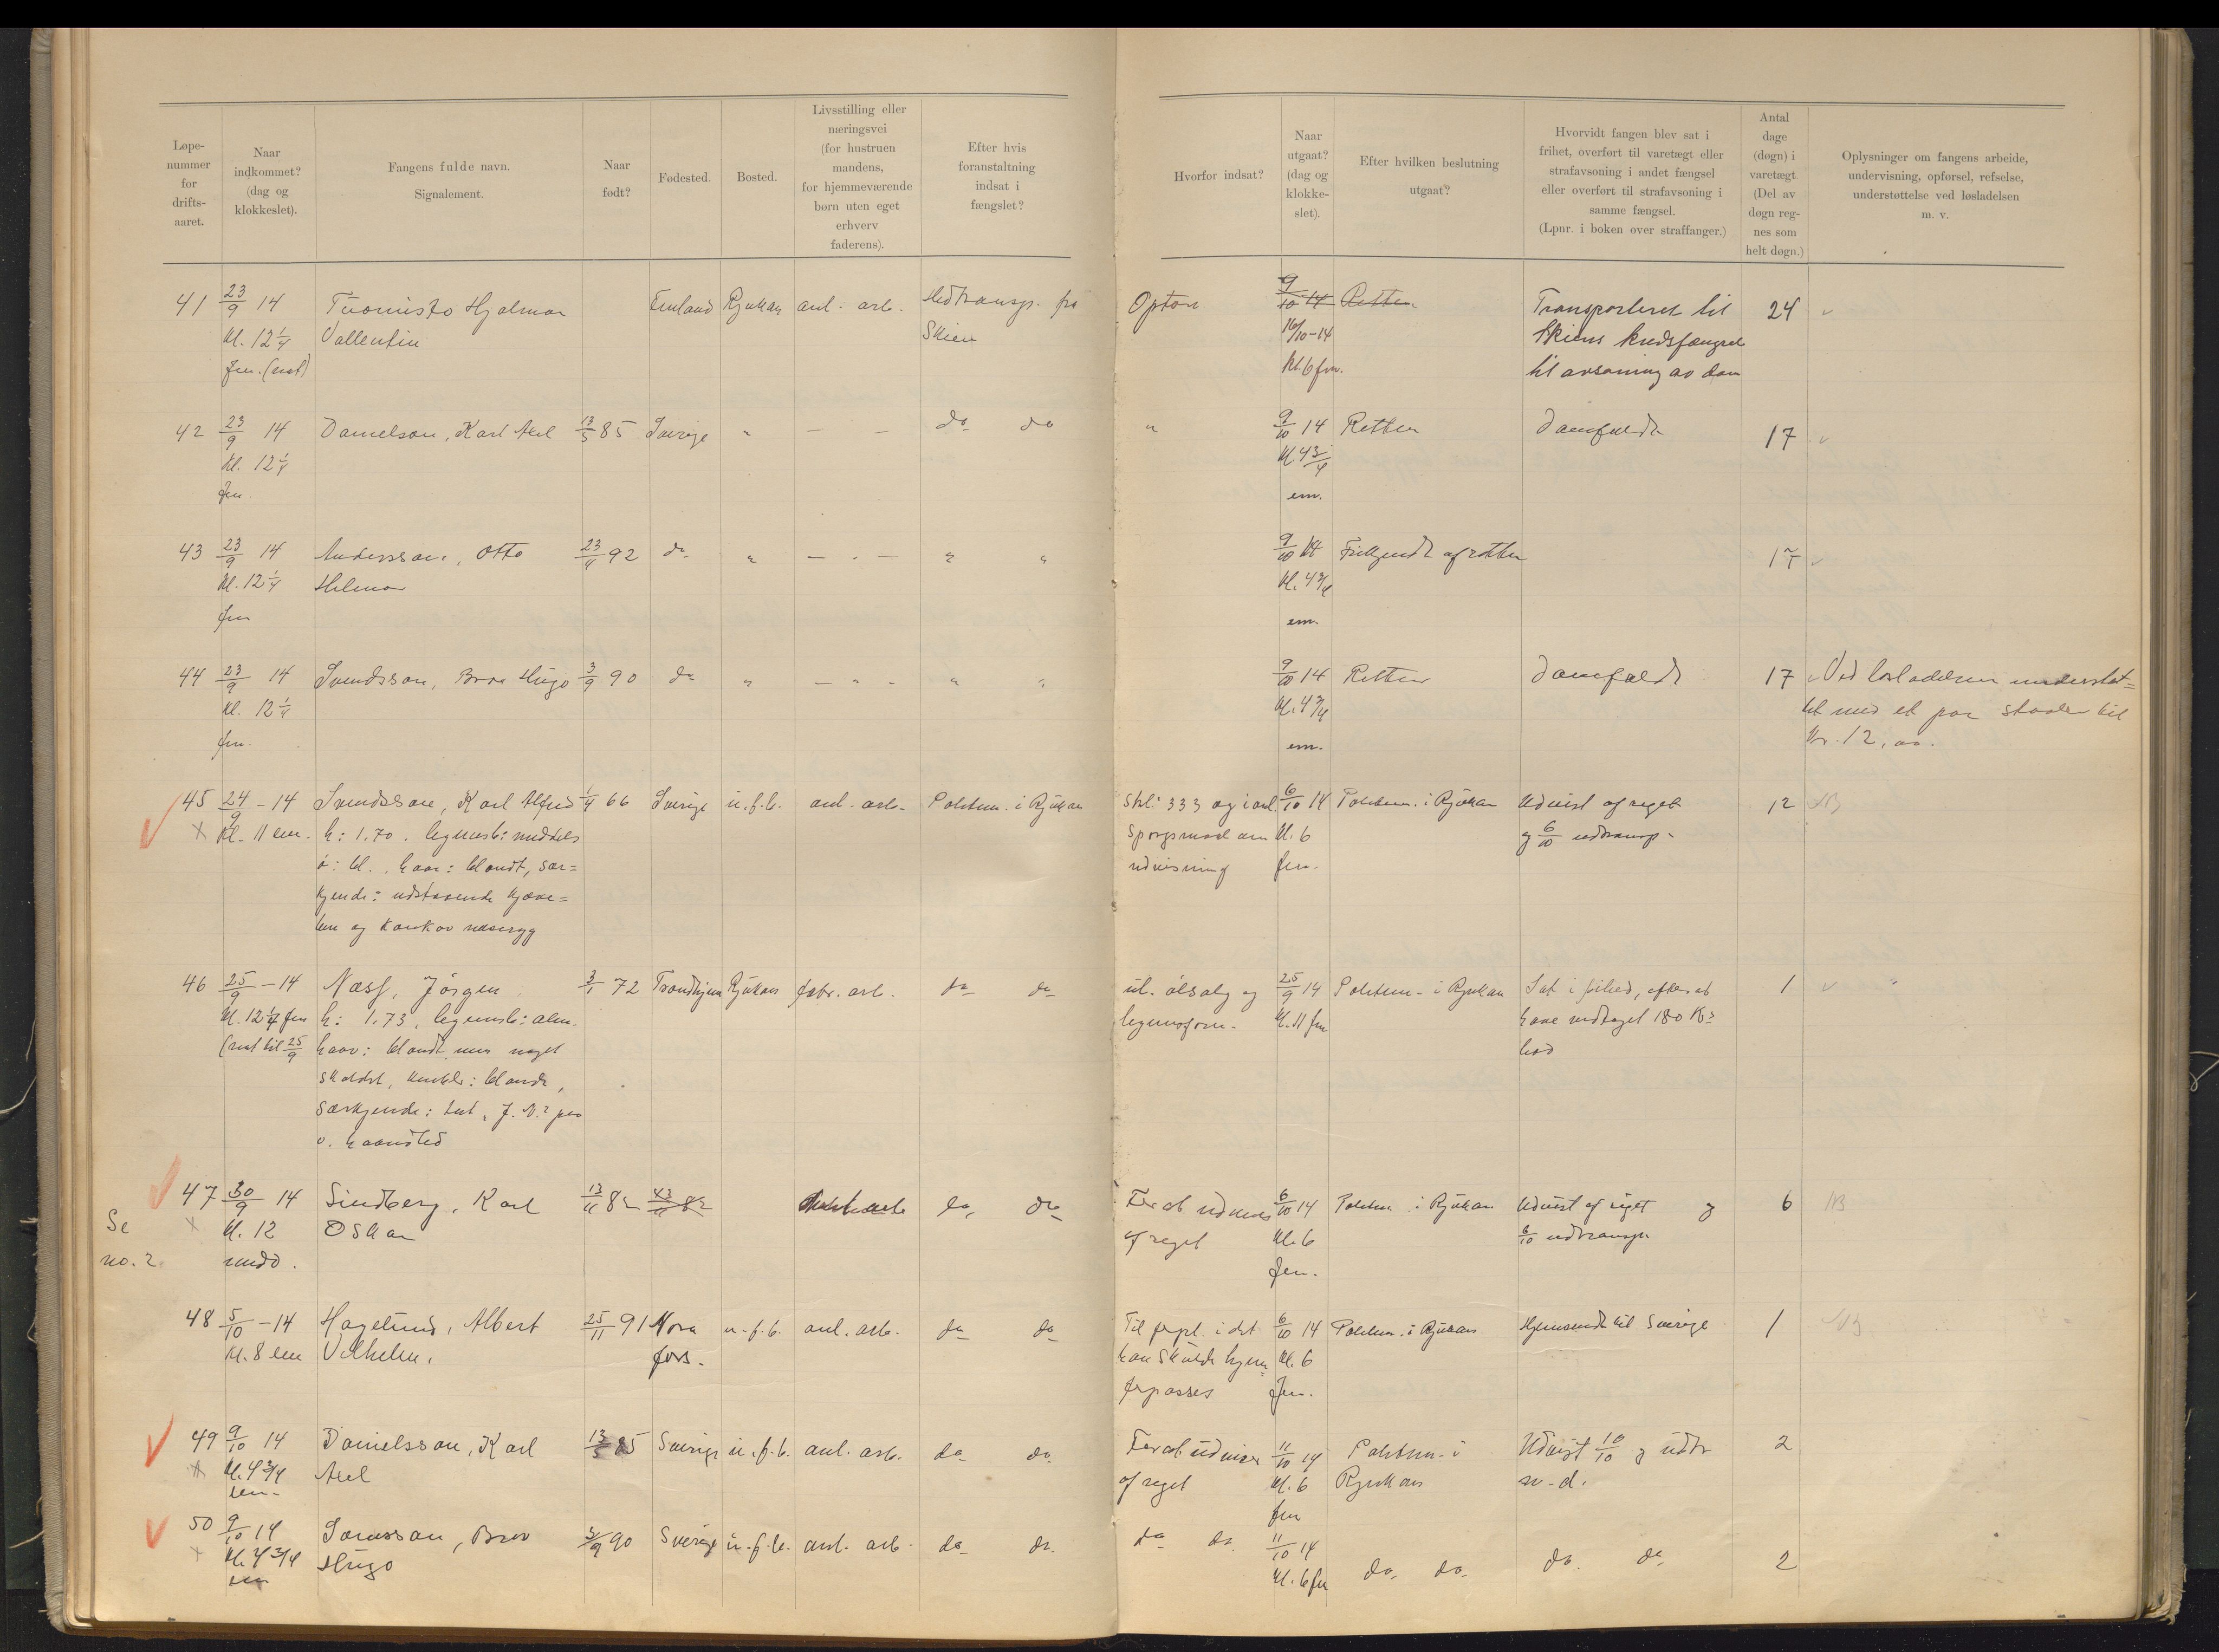 Løpe-
nummer
for
drifts-
aaret.
Naar
indkommet?
(dag og
klokkeslet).
Fangens fulde navn.
Signalement.
Naar
født?
Fødested.
Bosted.
Livsstilling eller
næringsvei
(for hustruen
mandens,
for hjemmeværende
børn uten eget
erhverv
faderens).
Efter hvis
foranstaltning
indsat i
fængslet?
Hvorfor indsat?
Naar
utgaat?
(dag og
klokke-
slet).
Efter hvilken beslutning
utgaat?
Hvorvidt fangen blev sat i
frihet, overført til varetægt eller
strafavsoning i andet fængsel
eller overført til strafavsoning i
samme fængsel.
(Lpnr. i boken over straffanger.)
Antal
dage
(døgn) i
varetægt
(Del av
døgn reg-
nes som
helt døgn.)
Oplysninger om fangens arbeide,
undervisning, opførsel, refselse,
understøttelse ved løsladelsen
m. v.
41 23/9 14 Tuomisto Hjalmar Finland Rjukan anl. arb. Uledtransp. fra Optøn 9/10 14 Retten Transporteret til 24
kl. 12 1/4 Vallentin Skien 16/10-14 Skiens kredsfængsel
fm. (nat) kl. 6 fm. til avsoning av dom
42 23/9 14 Danielson, Karl Axel 13/5 85 Sverige " — — do do " 9/10 14 Retten Domfældt 17
kl. 12 1/4 kl. 4 3/4
fm. em.
43 23/9 14 Andersson, Otto 23/4 92 do " — " — " " 9/10 14 Frikjendt af retten 17
kl. 12 1/4 Helmer kl. 4 3/4
fm em.
44 23/9 14 Svendsson, Bror Hugo 3/9 90 do " — " — " " 9/10 14 Retten Domfældt 17 Ved løsladelsen understøt=
kl. 12 1/4 kl. 4 3/4 tet med et par støvler til
fm. em. kr. 12,00.
45 24/9 - 14 Svendsson, Karl Alfred 1/4 66 Sverige u.f.b. anl. arb. Politim. i Rjukan Strl: 333 og i anl. 6/10 14 Politim. i Rjukan Udvist af riget 12 NB
Kl. 11 em. h: 1.70. legemsb: middels spørgsmaal om kl. 6 og 6/10 udtransp.
ö: bl., haar: blondt, sær= udvisning fm.
kjende: udstaaende kjæve=
ben og konkav næseryg
46 25/9 - 14 Næss, Jörgen 3/1 72 Trondhjem Rjukan fabr. arb. do do ul. ölsalg og 25/9 14 Politim. i Rjukan Sat i frihed, efter at 1
kl. 12 1/4 fm h: 1.73, legemsb: alm. legemsforn. kl. 11 fm have vedtaget 180 Kr
(nat til 25/9 haar: blondt men noget bod
skaldet, knebelb: blonde,
Særkjende: tat. J. N. paa
v. haandled
47 30/9 14 Lindberg, Karl 13/11 82 13/11 82 do do For at udvises 6/10 14 Politim. i Rjukan Udvist af riget og 6 NB
Se kl. 12 Oskar af riget kl. 6 6/10 udtransp.
no. 2. midd. fm.
48 5/10 - 14 Hagelund, Albert 25/11 91 Mora u.f.b. anl. arb. do do Til i det 6/10 14 Politim. i Rjukan Hjemsendt til Sverige 1 NB
kl. 8 em Vilhelm. fors. han skulde hjem kl. 6
forpasses fm.
49 9/10 14 Danielsson, Karl 13/5 85 Sverige u.f.b. anl. arb. do do. For at udvises 11/10 14 Politim. i Udvist 10/10 og udtr 2
kl. 4 3/4 Axel af riget kl. 6 Rjukan s. d.
em. fm
50 9/10 14 Svensson, Bror 3/9 90 Sverige u.f.b. anl. arb. do do. do do. 11/10 14 do. do. do. do 2
kl. 4 3/4 Hugo kl. 6 fm
em